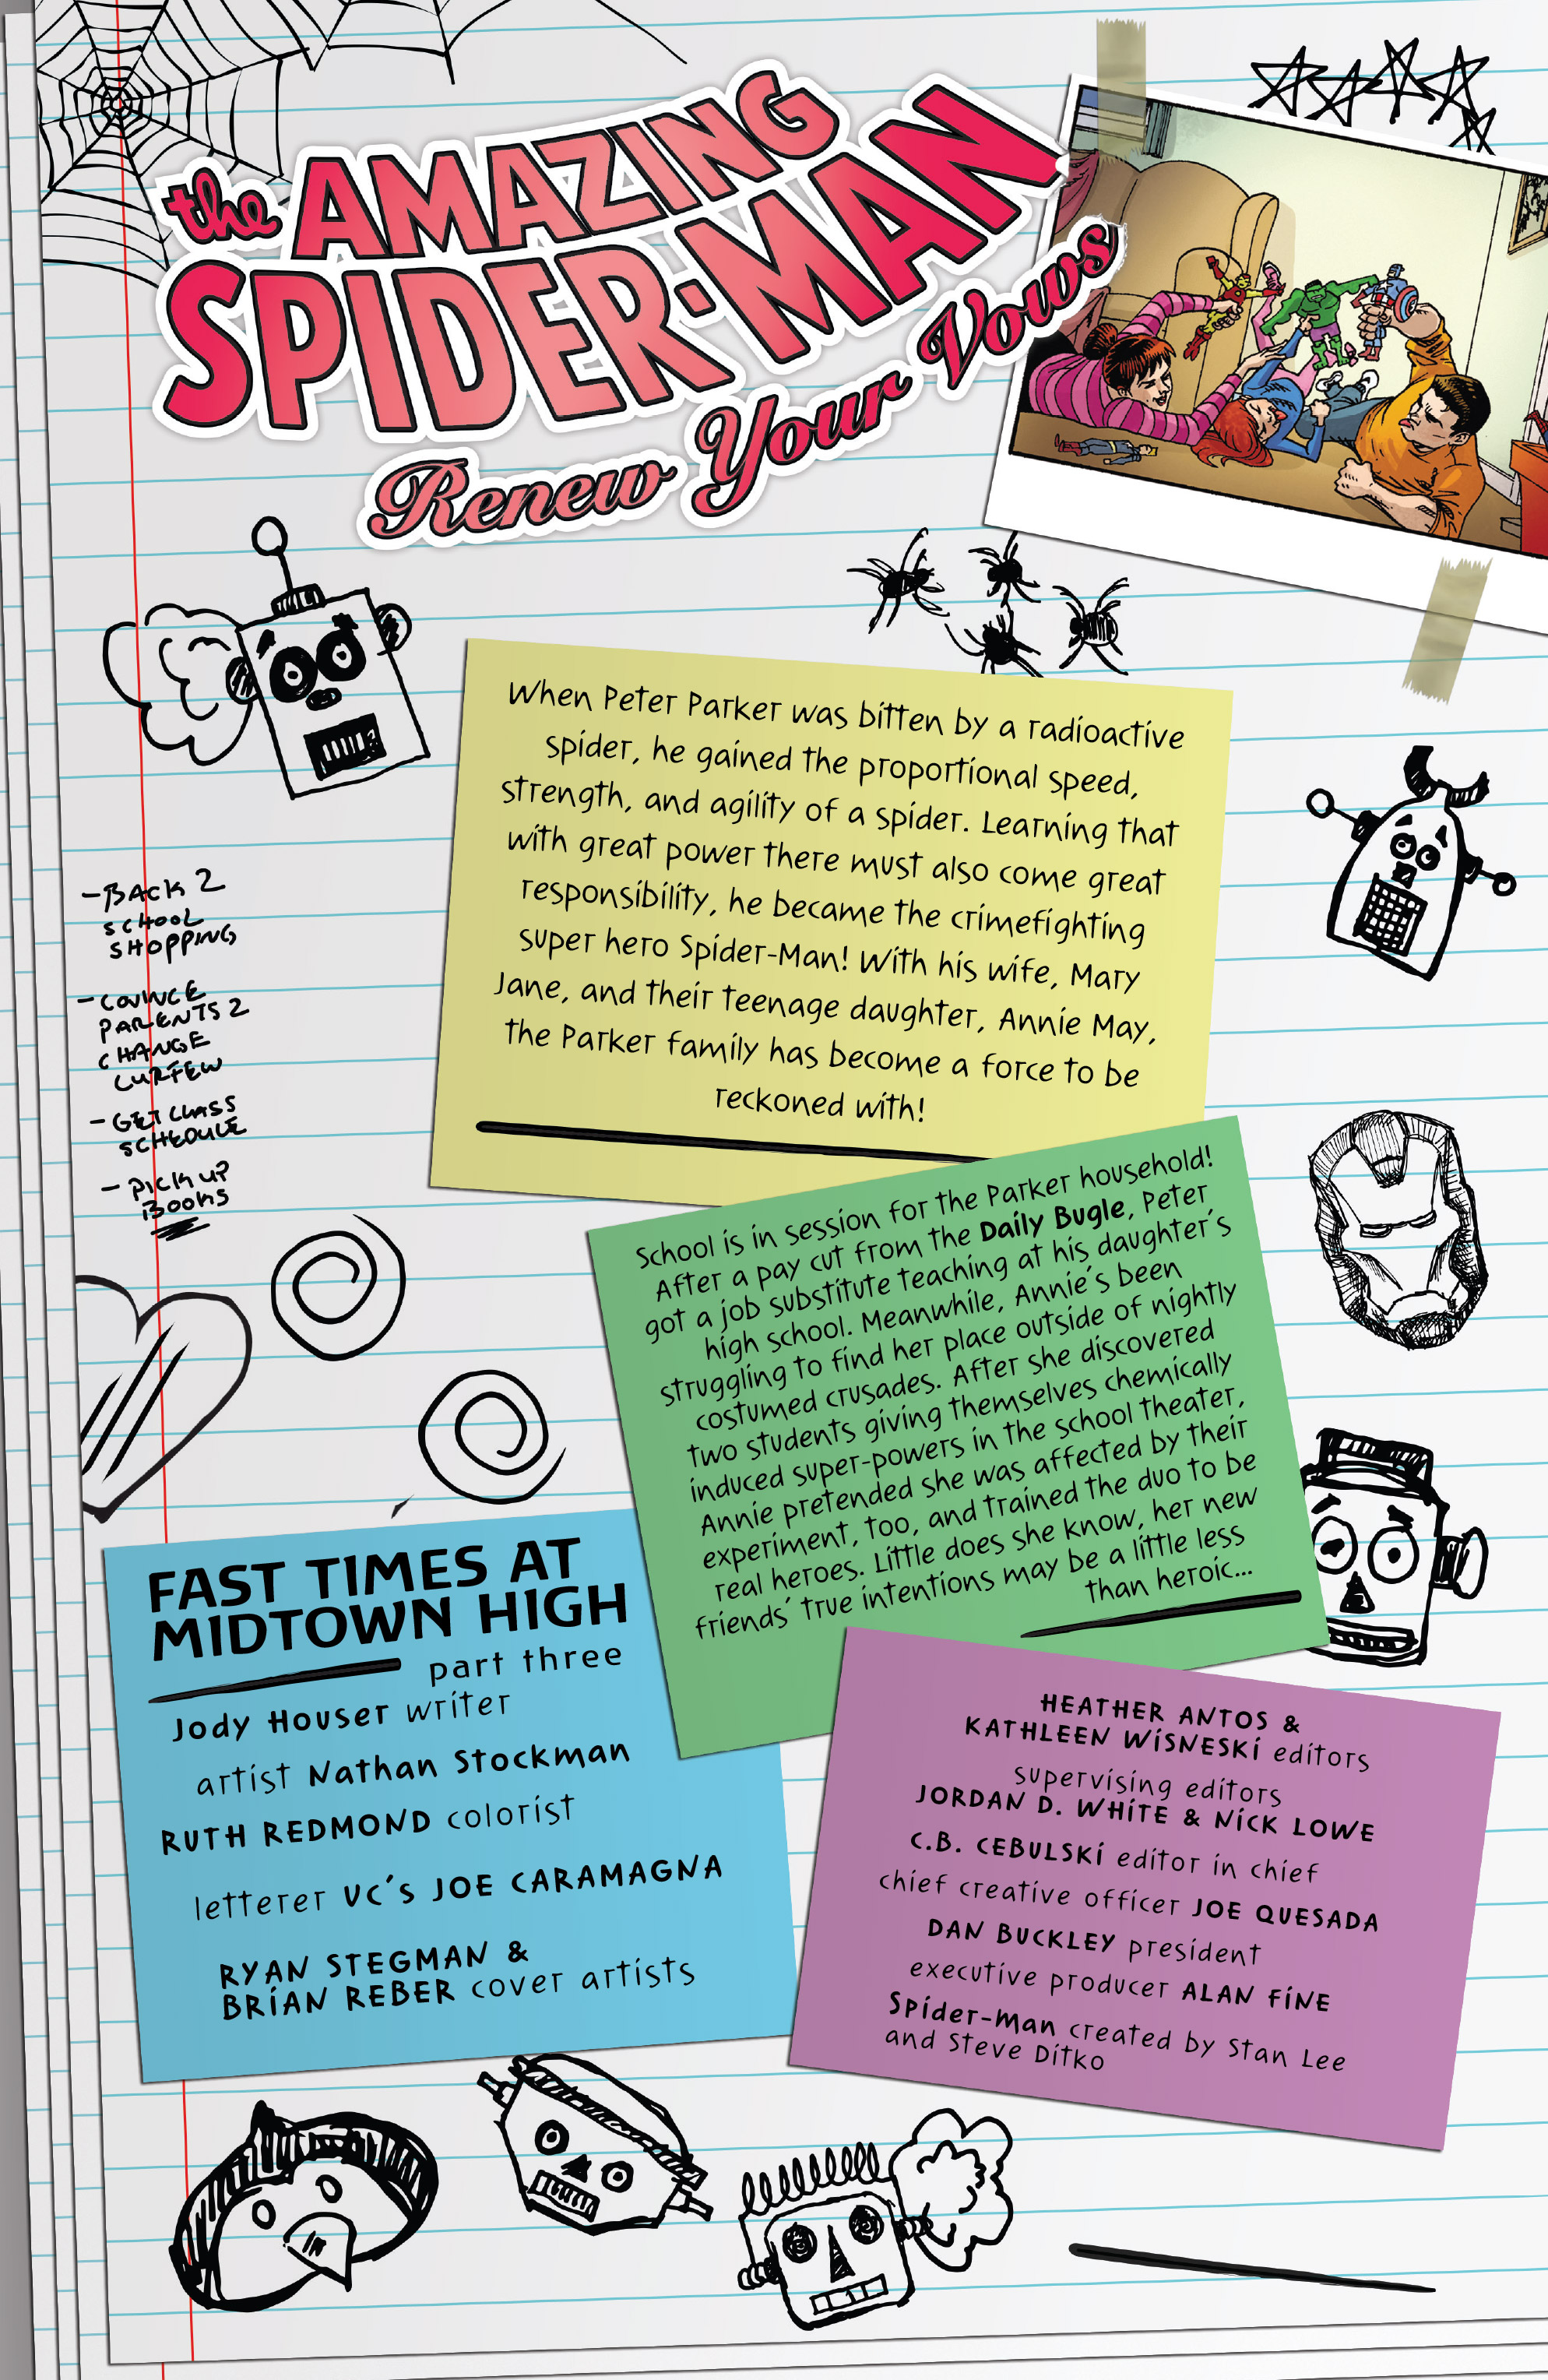 the AMAZING
SPIDER-MAN
Renew Your Vows
When Peter Parker was bitten by a radioactive
spider, he gained the proportional speed,
strength, and agility of a spider. Learning that
with great power there must also come great
responsibility, he became the crimefighting
super hero Spider-Man! With his wife, Mary
Jane, and their teenage daughter, Annie May,
the Parker family has become a force to be
reckoned with!
-BACK 2
SCHOOL
SHOPPING
-CONVINCE
PARENTS 2
CHANGE
CURFEW
-GET CLASS
SCHEDULE
-PICK UP
BOOKS
School is in session for the Parker household!
After a pay cut from the Daily Bugle, Peter
got a job substitute teaching at his daughter's
high school. Meanwhile, Annie's been
struggling to find her place outside of nightly
costumed crusades. After she discovered
two students giving themselves chemically
induced super-powers in the school theater,
Annie pretended she was affected by their
experiment, too, and trained the duo to be
real heroes. Little does she know, her new
friends' true intentions may be a little less
than heroic...
FAST TIMES AT
MIDTOWN HIGH
part three
Jody Houser writer
artist Nathan Stockman
RUTH REDMOND colorist
letterer VC's JOE CARAMAGNA
RYAN STEGMAN &
BRIAN REBER cover artists
HEATHER ANTOS &
KATHLEEN WISNESKI editors
supervising editors
JORDAN D. WHITE & NICK LOWE
C.B. CEBULSKI editor in chief
chief creative officer JOE QUESADA
DAN BUCKLEY president
executive producer ALAN FINE
Spider-man created by Stan Lee
and Steve Ditko